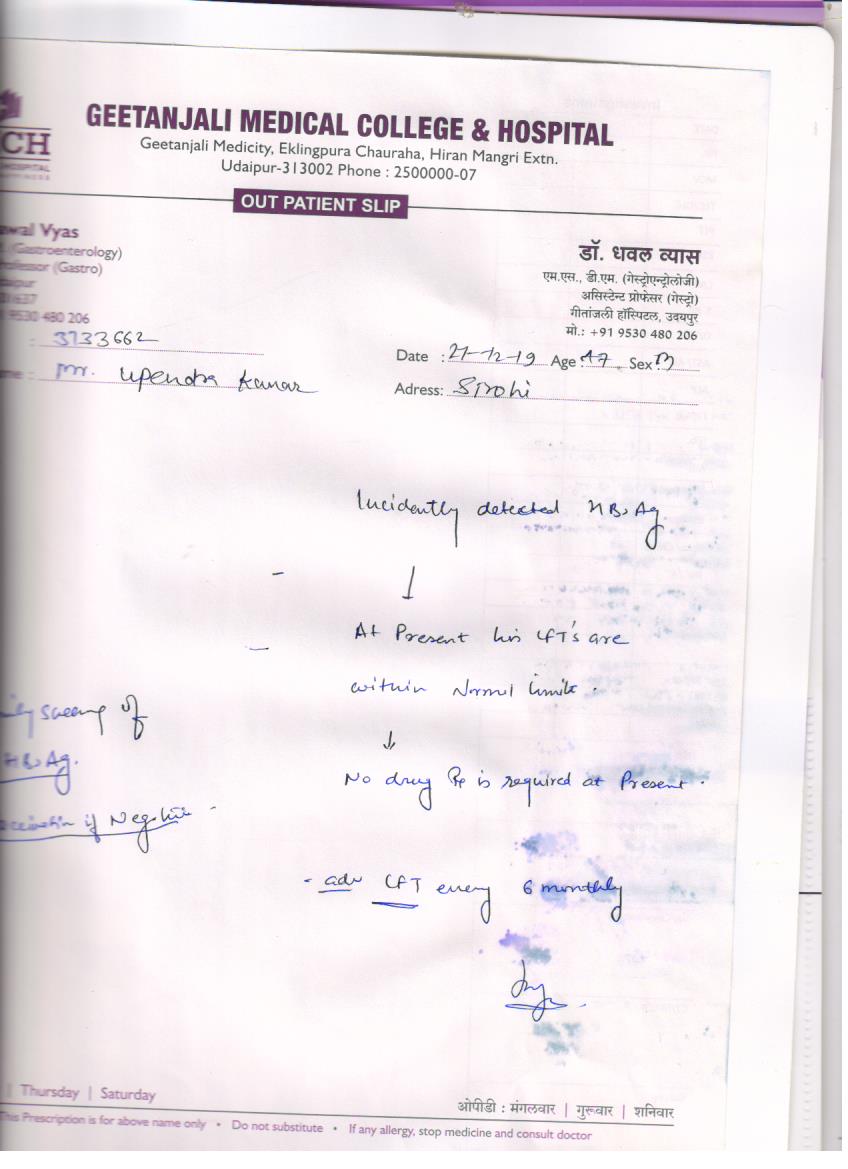 GEETANJALI MEDICAL COLLEGE & HOSPITAL
CH
HOSPITAL
Geetanjali Medicity, Eklingpura Chauraha, Hiran Mangri Extn.
Udaipur-313002 Phone : 2500000-07
OUT PATIENT SLIP
awal Vyas
(Gastroenterology)
rofessor (Gastro)
daipur
9530 480 206
डॉ. धवल व्यास
एम.एस., डी.एम. (गेस्ट्रोएन्ट्रोलोजी)
असिस्टेन्ट प्रोफेसर (गेस्ट्रो)
गीतांजली हॉस्पिटल, उदयपुर
मो.: +91 9530 480 206
: 3733662
Date : 21-12-19 Age 47 Sex M
ame : Mr. Upendra Kumar
Adress: Sirohi
Incidently detected HBsAg
At Present his LFT's are
within Normal limits.
No drug Rx is required at Present.
ily screeing of
HBsAg.
accination if Negative
- adv LFT every 6 monthly
| Thursday | Saturday
ओपीडी : मंगलवार | गुरूवार | शनिवार
This Prescription is for above name only • Do not substitute • If any allergy, stop medicine and consult doctor